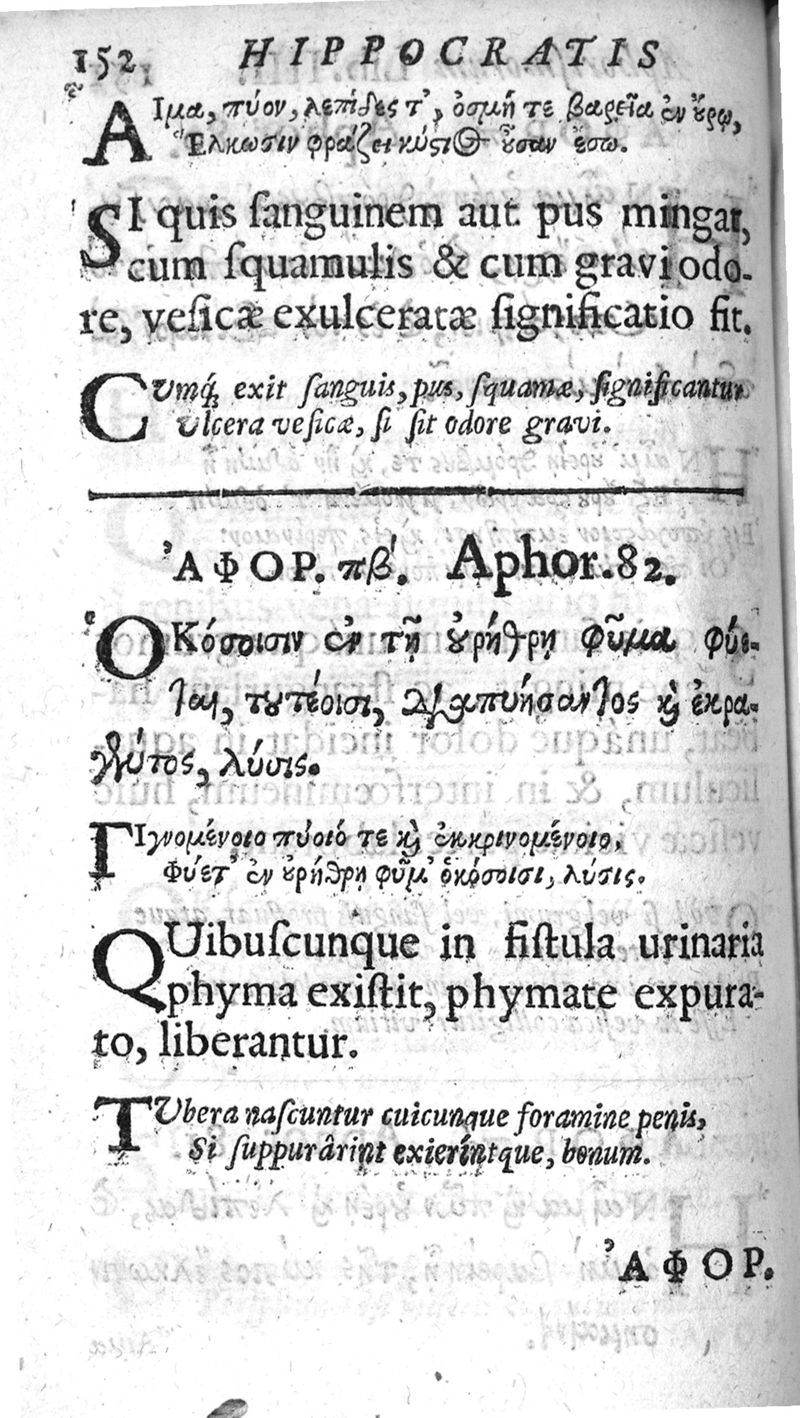 152 HIPPOCRATIS
Αἷμα, πύον, λεπίδες τ', ὀσμή τε βαρεῖα ἐν ὔρῳ,
Ἕλκωσιν φράζει κύστιος ὖσαν ἔσω.
SI quis ſanguinem aut pus mingat,
cum ſquamulis & cum gravi odo-
re, veſicæ exulceratæ ſignificatio fit.
CUmq́; exit ſanguis, pus, ſquamæ, ſignificantur
Ulcera veſicæ, ſi ſit odore gravi.
ἈΦΟΡ. πβ'. Aphor. 82.
ὉΚόσοισιν ἐν τῇ ȣ̓ρήθρῃ φῦμα φύε-
ται, τȣτέοισι, διαπυήσαντος κỳ ἐκρα-
γέντος, λύσις.
ΓΙγνομένοιο πύοιό τε κỳ ἐκκρινομένοιο,
Φύετ' ἐν ȣ̓ρήθρῃ φῦμ' ὁκόσοισι, λύσις.
QUibuſcunque in fiſtula urinaria
phyma exiſtit, phymate expura-
to, liberantur.
TUbera naſcuntur cuicunque foramine penis,
Si ſuppurârint exierintque, bonum.
ἈΦΟΡ.